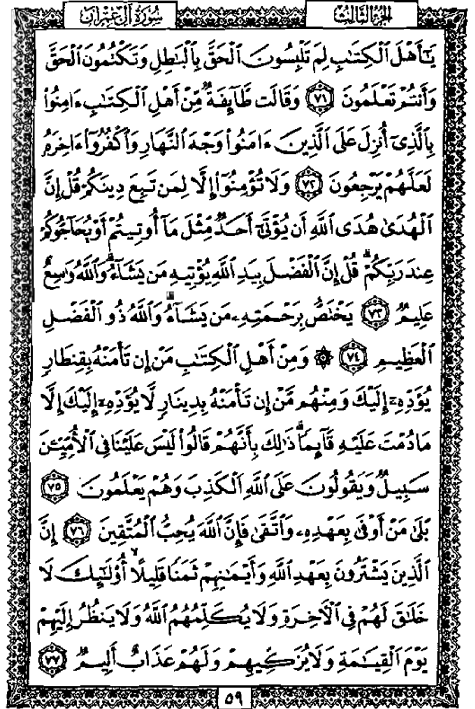 الجزء الثالث
سورة آل عمران
يَٰٓأَهْلَ ٱلْكِتَٰبِ لِمَ تَلْبِسُونَ ٱلْحَقَّ بِٱلْبَٰطِلِ وَتَكْتُمُونَ ٱلْحَقَّ
وَأَنتُمْ تَعْلَمُونَ ٧١ وَقَالَت طَّآئِفَةٌ مِّنْ أَهْلِ ٱلْكِتَٰبِ ءَامِنُوا۟
بِٱلَّذِىٓ أُنزِلَ عَلَى ٱلَّذِينَ ءَامَنُوا۟ وَجْهَ ٱلنَّهَارِ وَٱكْفُرُوٓا۟ ءَاخِرَهُۥ
لَعَلَّهُمْ يَرْجِعُونَ ٧٢ وَلَا تُؤْمِنُوٓا۟ إِلَّا لِمَن تَبِعَ دِينَكُمْ قُلْ إِنَّ
ٱلْهُدَىٰ هُدَى ٱللَّهِ أَن يُؤْتَىٰٓ أَحَدٌ مِّثْلَ مَآ أُوتِيتُمْ أَوْ يُحَآجُّوكُمْ
عِندَ رَبِّكُمْ ۗ قُلْ إِنَّ ٱلْفَضْلَ بِيَدِ ٱللَّهِ يُؤْتِيهِ مَن يَشَآءُ ۗ وَٱللَّهُ وَٰسِعٌ
عَلِيمٌ ٧٣ يَخْتَصُّ بِرَحْمَتِهِۦ مَن يَشَآءُ ۗ وَٱللَّهُ ذُو ٱلْفَضْلِ
ٱلْعَظِيمِ ٧٤ ۞ وَمِنْ أَهْلِ ٱلْكِتَٰبِ مَنْ إِن تَأْمَنْهُ بِقِنطَارٍ
يُؤَدِّهِۦٓ إِلَيْكَ وَمِنْهُم مَّنْ إِن تَأْمَنْهُ بِدِينَارٍ لَّا يُؤَدِّهِۦٓ إِلَيْكَ إِلَّا
مَا دُمْتَ عَلَيْهِ قَآئِمًا ۗ ذَٰلِكَ بِأَنَّهُمْ قَالُوا۟ لَيْسَ عَلَيْنَا فِى ٱلْأُمِّيِّـۧنَ
سَبِيلٌ وَيَقُولُونَ عَلَى ٱللَّهِ ٱلْكَذِبَ وَهُمْ يَعْلَمُونَ ٧٥
بَلَىٰ مَنْ أَوْفَىٰ بِعَهْدِهِۦ وَٱتَّقَىٰ فَإِنَّ ٱللَّهَ يُحِبُّ ٱلْمُتَّقِينَ ٧٦ إِنَّ
ٱلَّذِينَ يَشْتَرُونَ بِعَهْدِ ٱللَّهِ وَأَيْمَٰنِهِمْ ثَمَنًا قَلِيلًا أُو۟لَٰٓئِكَ لَا
خَلَٰقَ لَهُمْ فِى ٱلْءَاخِرَةِ وَلَا يُكَلِّمُهُمُ ٱللَّهُ وَلَا يَنظُرُ إِلَيْهِمْ
يَوْمَ ٱلْقِيَٰمَةِ وَلَا يُزَكِّيهِمْ وَلَهُمْ عَذَابٌ أَلِيمٌ ٧٧
٥٩